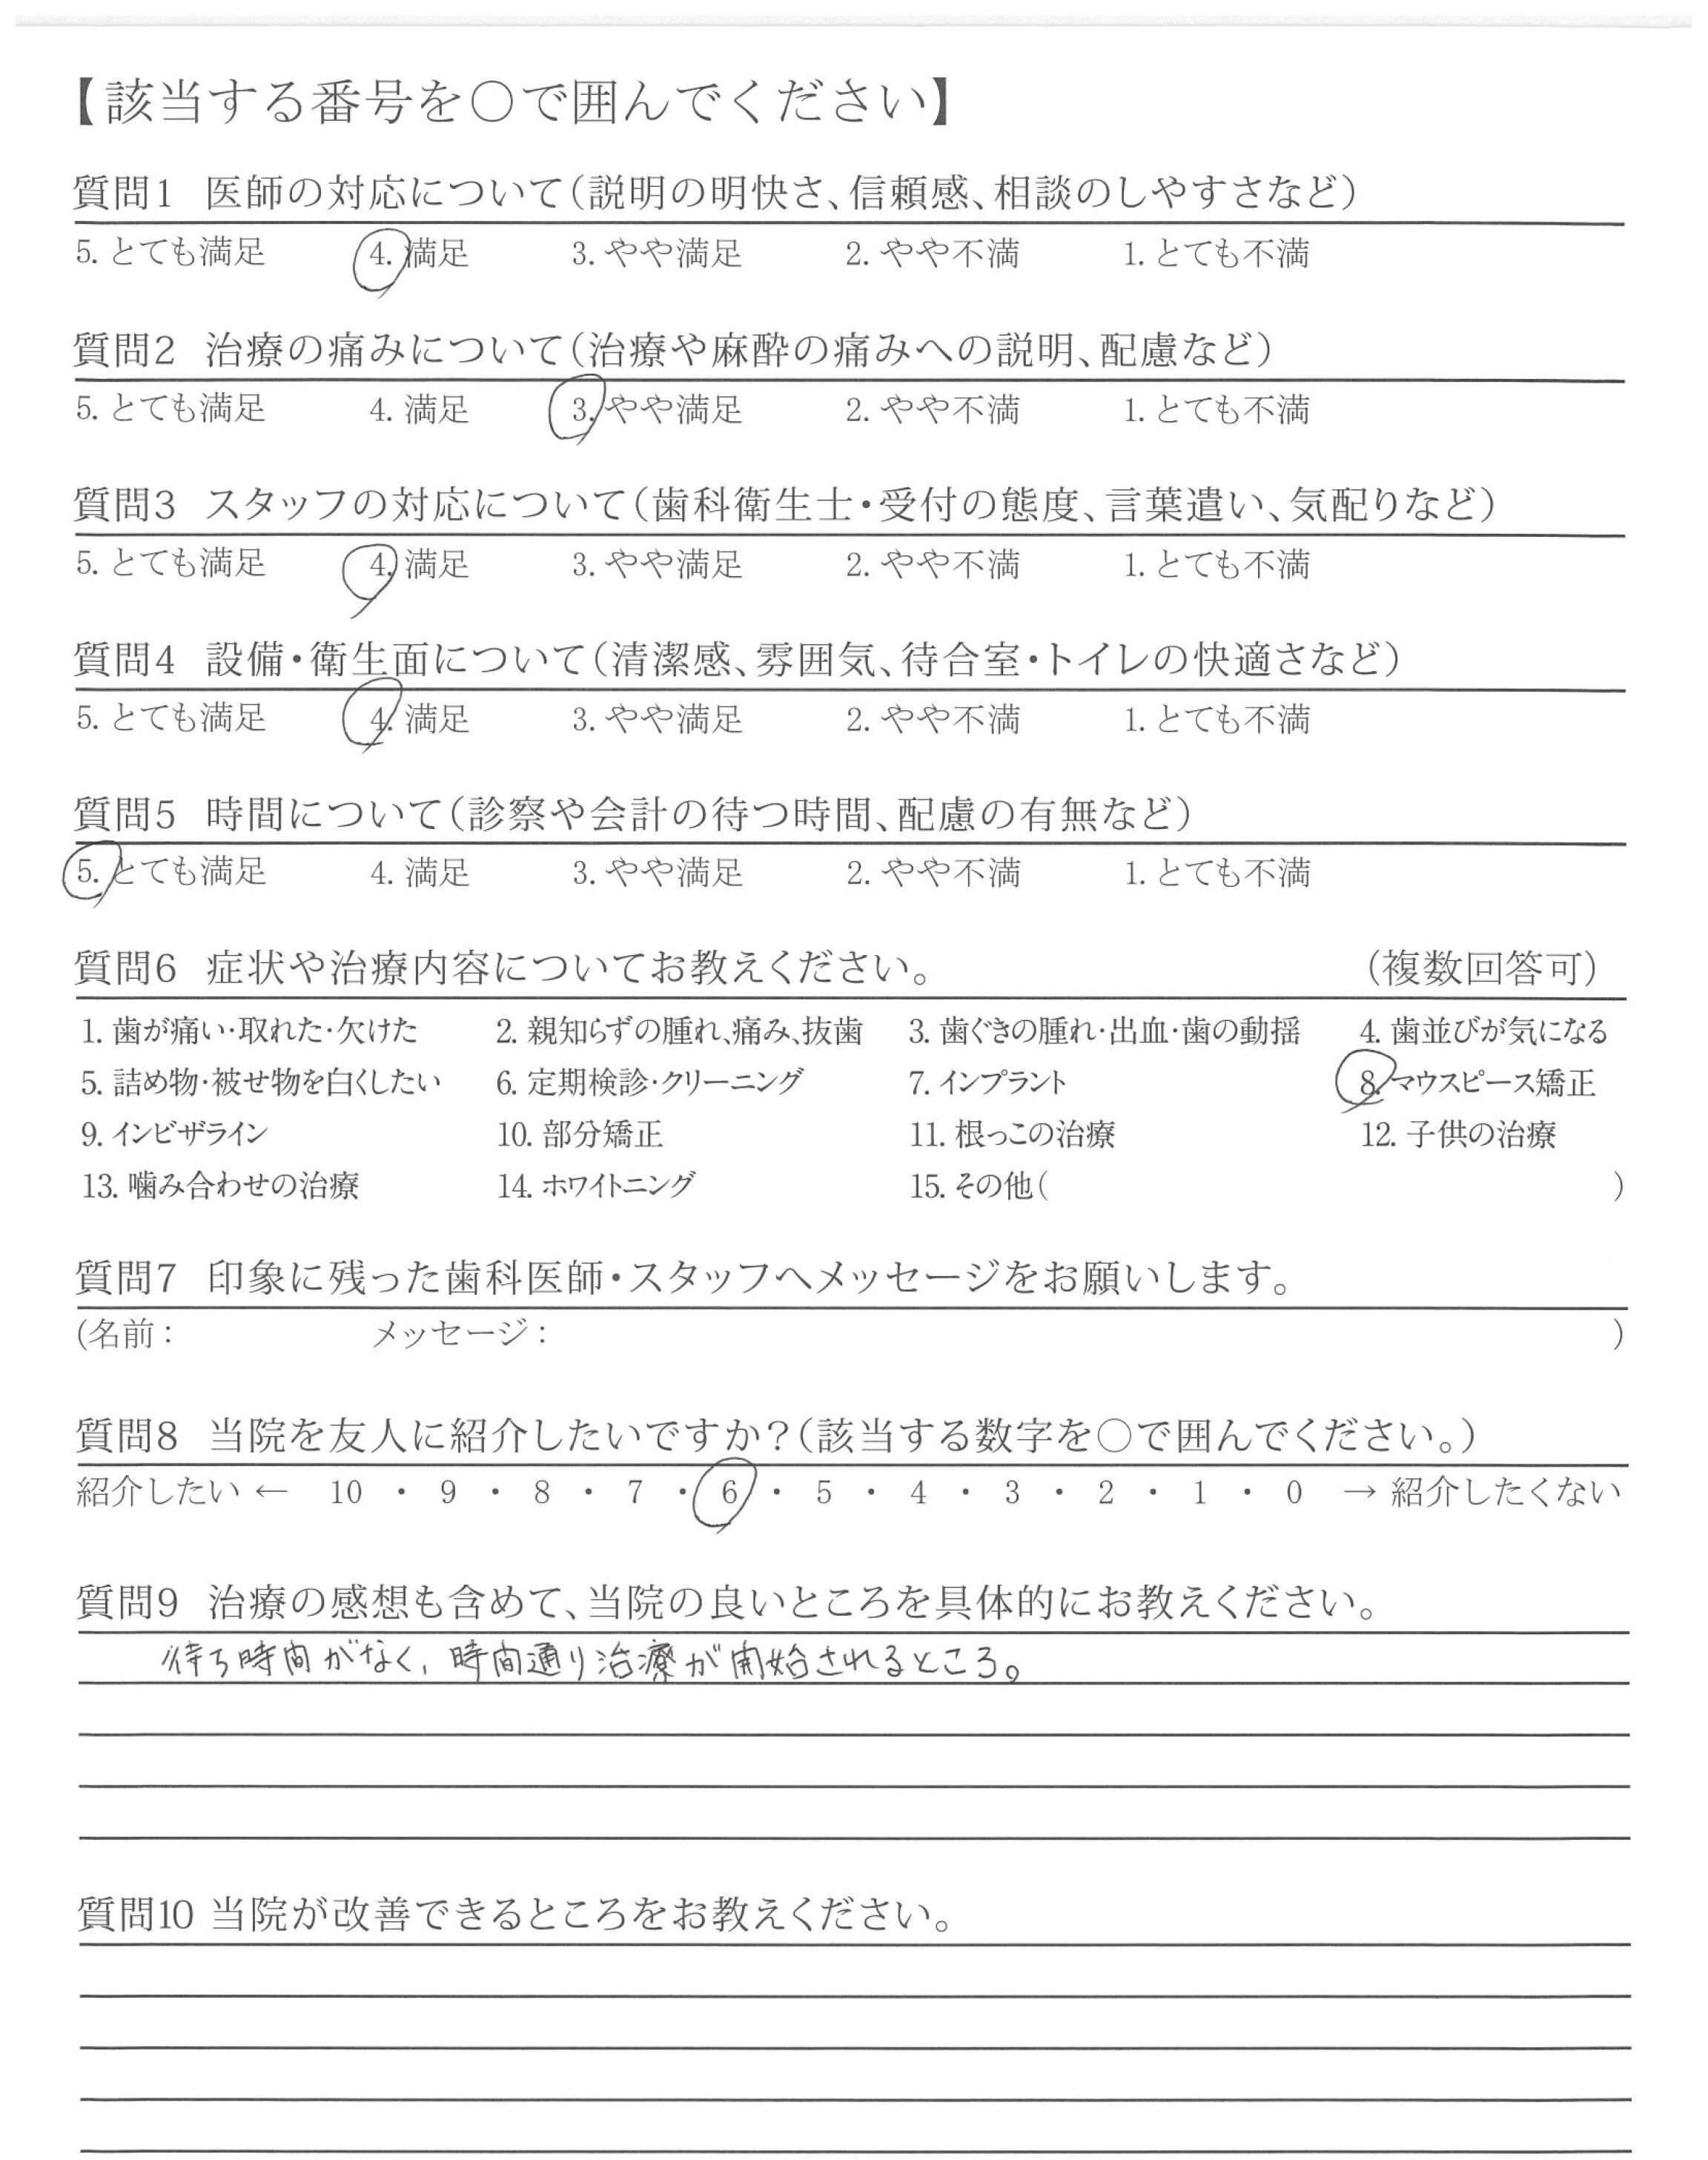 【該当する番号を〇で囲んでください】
質問1 医師の対応について(説明の明快さ、信頼感、相談のしやすさなど)
5. とても満足 4. 満足 3. やや満足 2. やや不満 1. とても不満
質問2 治療の痛みについて(治療や麻酔の痛みへの説明、配慮など)
5. とても満足 4. 満足 3. やや満足 2. やや不満 1. とても不満
質問3 スタッフの対応について(歯科衛生士・受付の態度、言葉遣い、気配りなど)
5. とても満足 4. 満足 3. やや満足 2. やや不満 1. とても不満
質問4 設備・衛生面について(清潔感、雰囲気、待合室・トイレの快適さなど)
5. とても満足 4. 満足 3. やや満足 2. やや不満 1. とても不満
質問5 時間について(診察や会計の待つ時間、配慮の有無など)
5. とても満足 4. 満足 3. やや満足 2. やや不満 1. とても不満
質問6 症状や治療内容についてお教えください。 (複数回答可)
1. 歯が痛い・取れた・欠けた 2. 親知らずの腫れ、痛み、抜歯 3. 歯ぐきの腫れ・出血・歯の動揺 4. 歯並びが気になる
5. 詰め物・被せ物を白くしたい 6. 定期検診・クリーニング 7. インプラント 8. マウスピース矯正
9. インビザライン 10. 部分矯正 11. 根っこの治療 12. 子供の治療
13. 噛み合わせの治療 14. ホワイトニング 15. その他( )
質問7 印象に残った歯科医師・スタッフへメッセージをお願いします。
(名前: メッセージ: )
質問8 当院を友人に紹介したいですか?(該当する数字を〇で囲んでください。)
紹介したい ← 10 ・ 9 ・ 8 ・ 7 ・ 6 ・ 5 ・ 4 ・ 3 ・ 2 ・ 1 ・ 0 → 紹介したくない
質問9 治療の感想も含めて、当院の良いところを具体的にお教えください。
待ち時間がなく、時間通り治療が開始されるところ。
質問10 当院が改善できるところをお教えください。